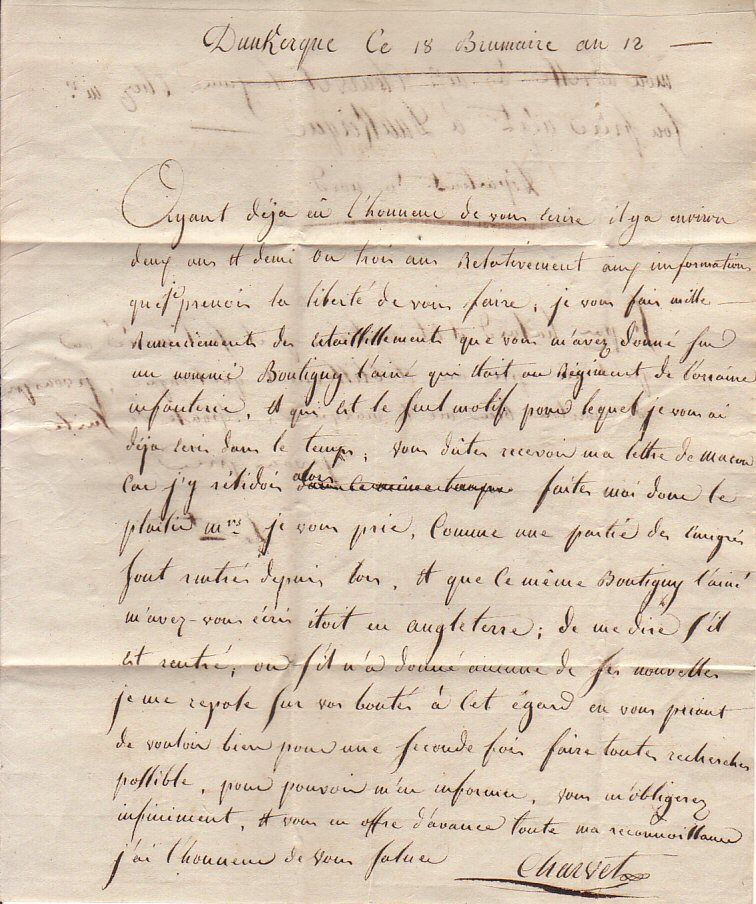 Dunkerque Ce 18 Brumaire an 12
Ayant déja eû l'honneur de vous ecrire il y a environ
deux ans et demi ou trois ans Relativement aux informations
que je prenois la liberté de vous faire, je vous fais mille
Remerciements des eclaissillements que vous m'avez donné sur
un nommé Boutigny l'ainé qui etoit au Régiment de Lorraine
infanterie, et qui est le seul motif pour lequel je vous ai
déja ecris dans le temps, vous dûtes recevoir ma lettre de macon
Car j'y résidois alors dans le même temps faites moi donc le
plaisir Mrs je vous prie, Comme une partie des Emigrés
sont rentrés depuis lors, et que Ce même Boutigny l'ainé
m'avez-vous écris étoit en angleterre; de me dire s'il
est rentré, ou s'il n'a donné aucune de ses nouvelles
je me repose sur vos bontés à Cet égard en vous priant
de vouloir bien pour une seconde fois faire toutes recherches
possible, pour pouvoir m'en informer, vous m'obligerez
infiniment, et vous en offre d'avance toute ma reconnoissance
j'ai l'honneur de vous saluer Charvet